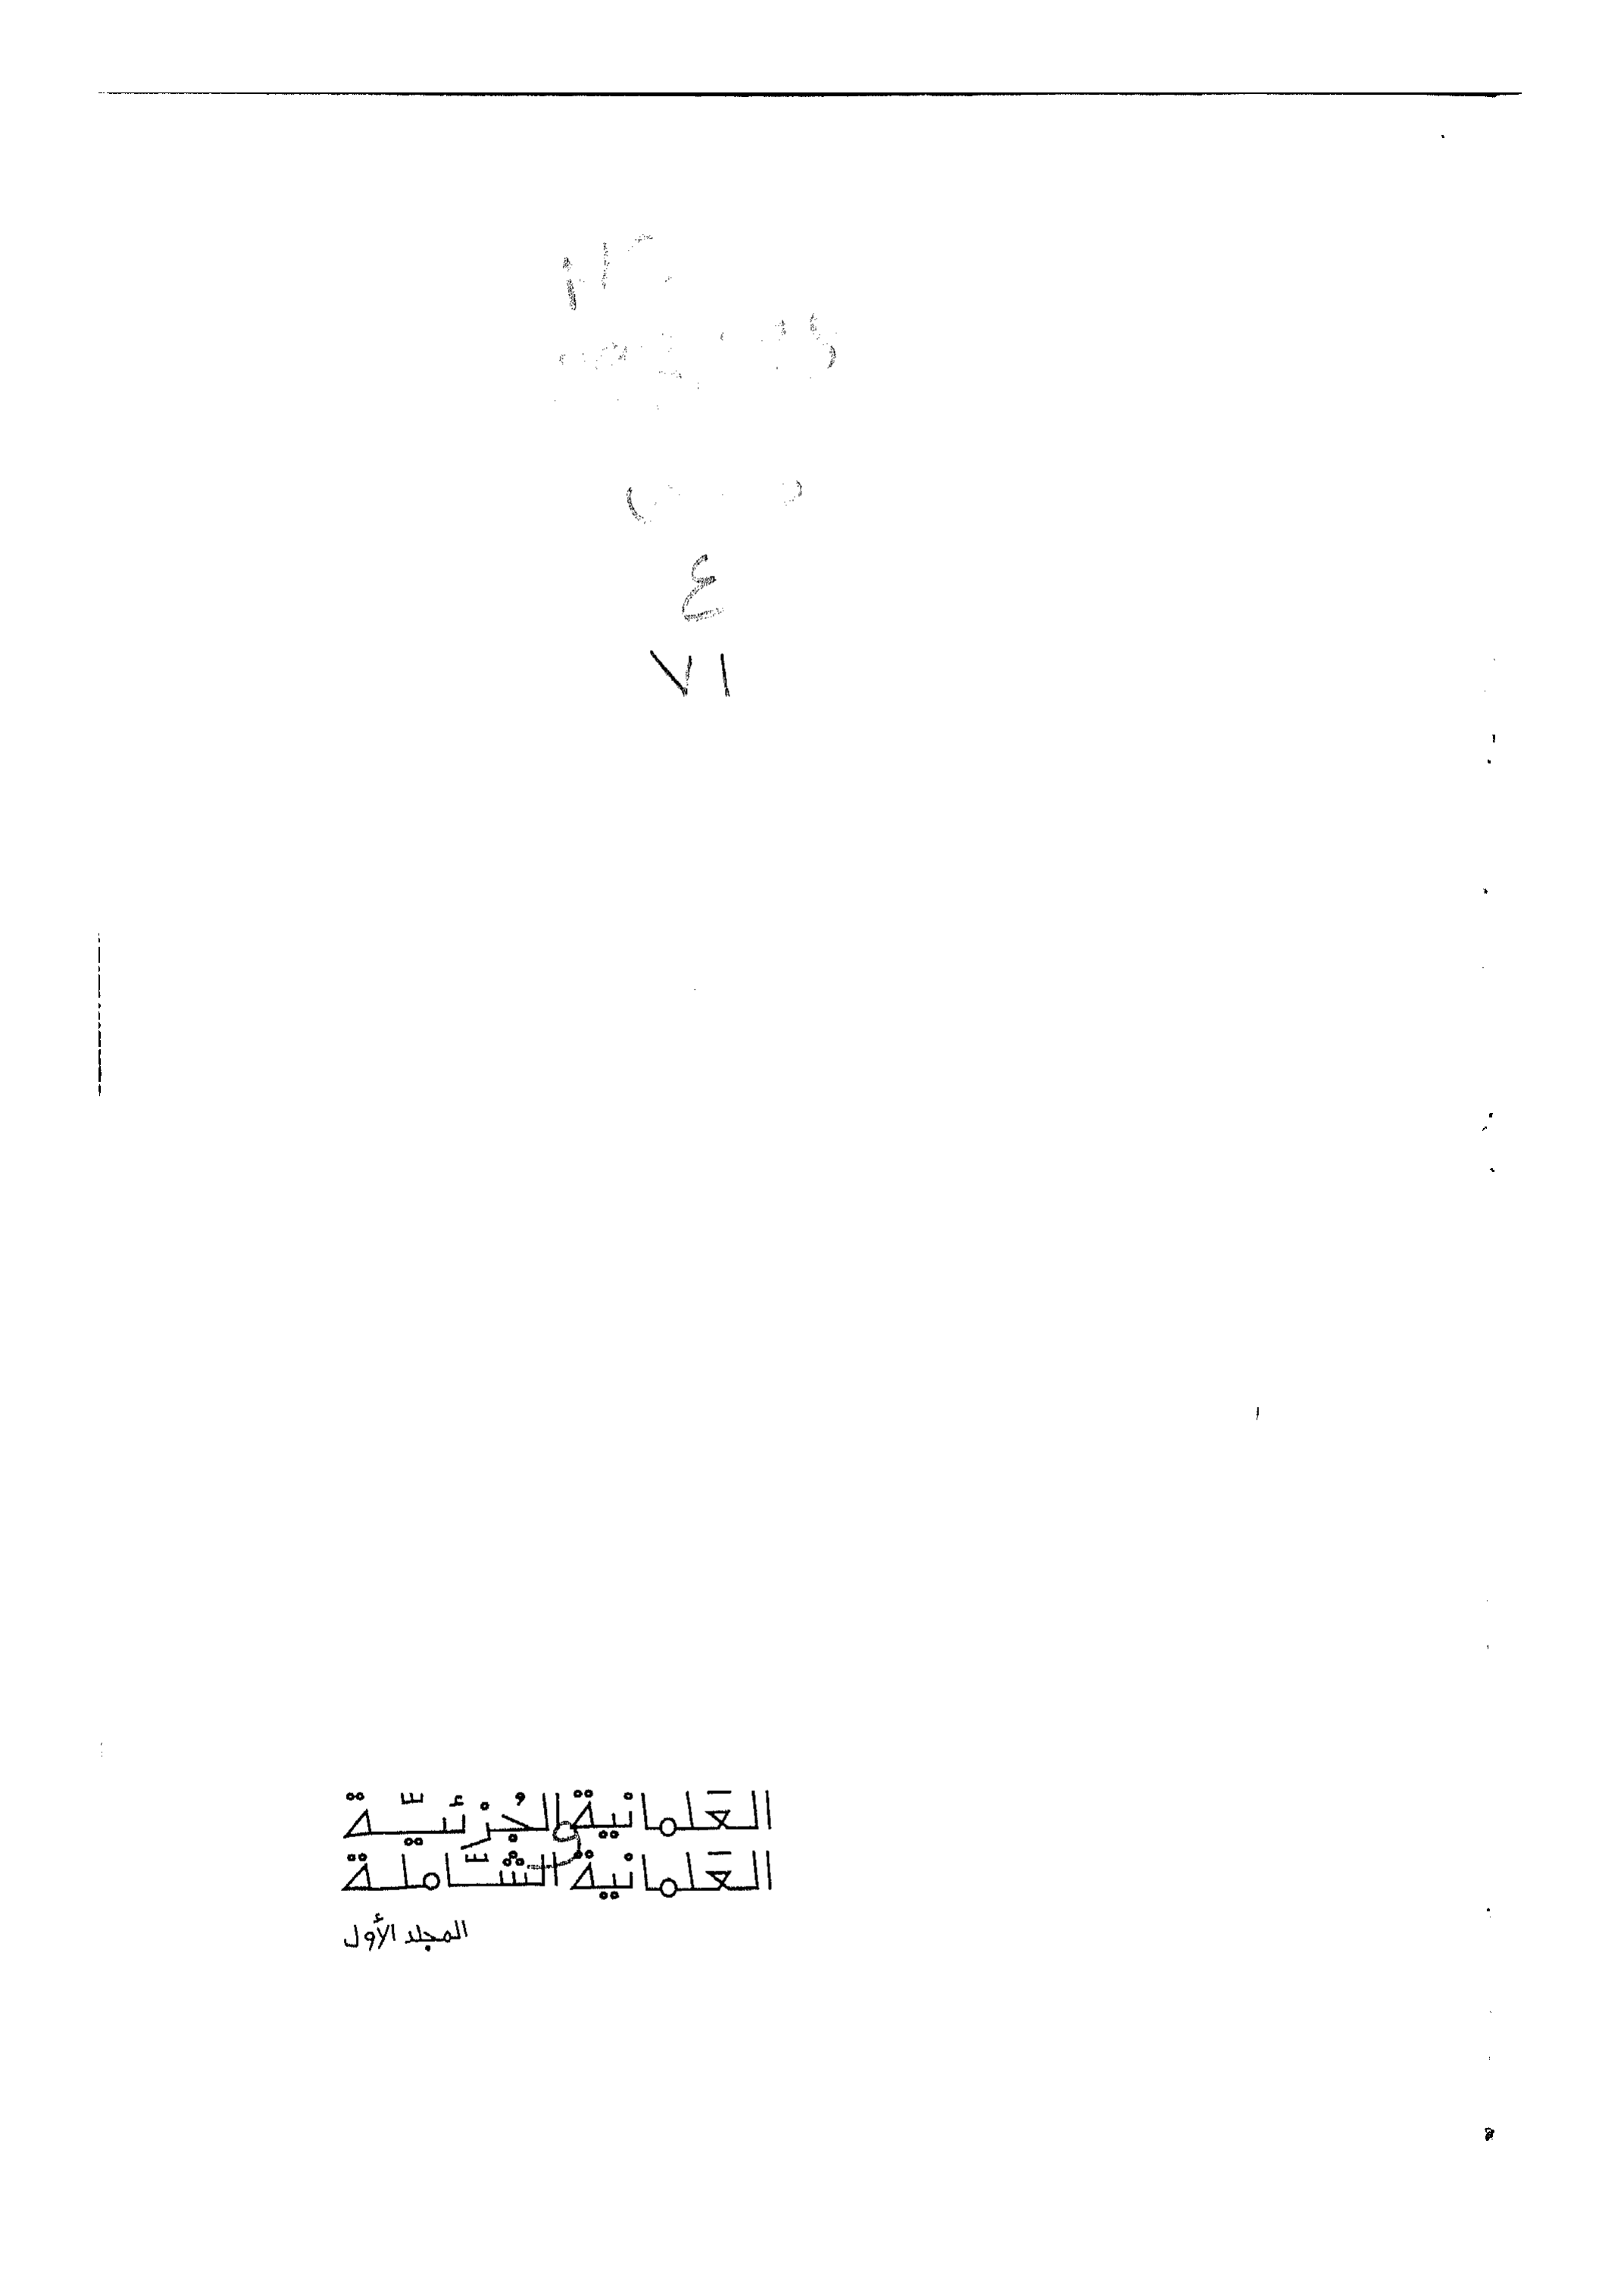 ع
٧١
العَلمانية الجُزْئيّة
و
العَلمانية الشّاملة
المجلد الأول